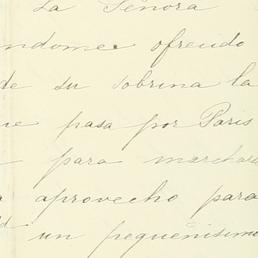 La Señora
ndome ofrecido
de su sobrina la
ue pasa por Paris
para marchars
aprovecho para
un pequeñisimo